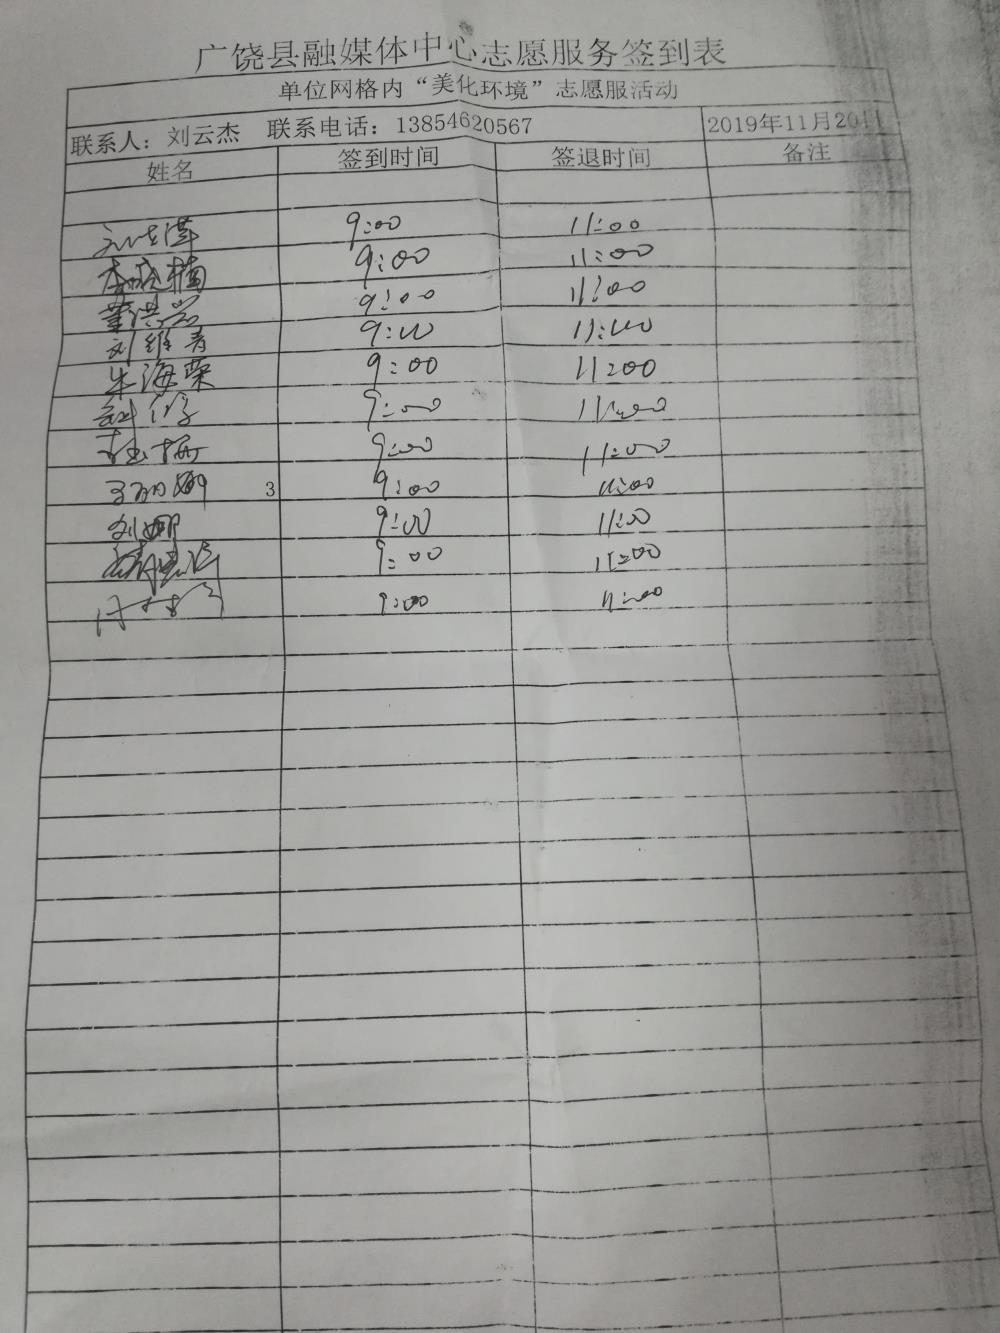 广饶县融媒体中心志愿服务签到表
单位网格内“美化环境”志愿服活动
联系人：刘云杰 联系电话：13854620567 2019年11月20日
姓名 签到时间 签退时间 备注
9:00 11:00
李晓楠 9:00 11:00
董洪岩 9:00 11:00
刘维青 9:00 11:00
朱海荣 9:00 11:00
9:00 11:00
杜梅 9:00 11:00
王丽娜 3 9:00 11:00
刘娜 9:00 11:00
9:00 11:00
9:00 11:00